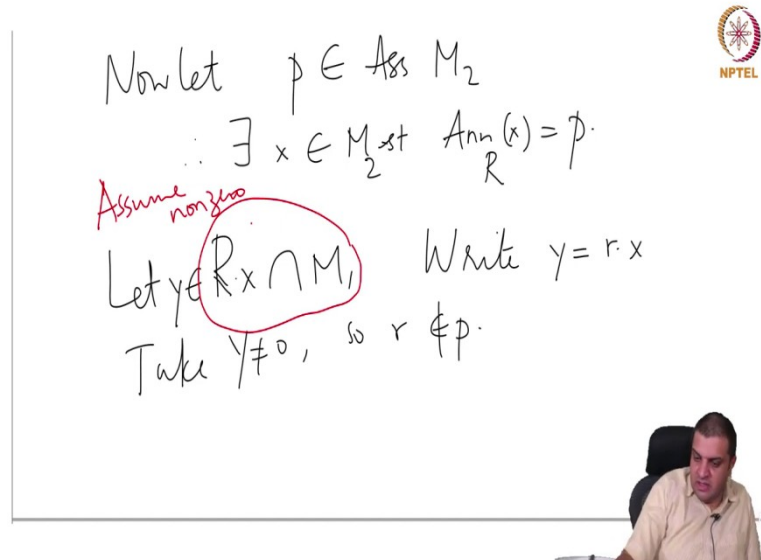 NPTEL
Now let p ∈ Ass M₂
∴ ∃ x ∈ M₂ st Ann_R (x) = p.
Assume nonzero
Let y ∈ R·x ∩ M₁ Write y = r·x
Take y ≠ 0, so r ∉ p.